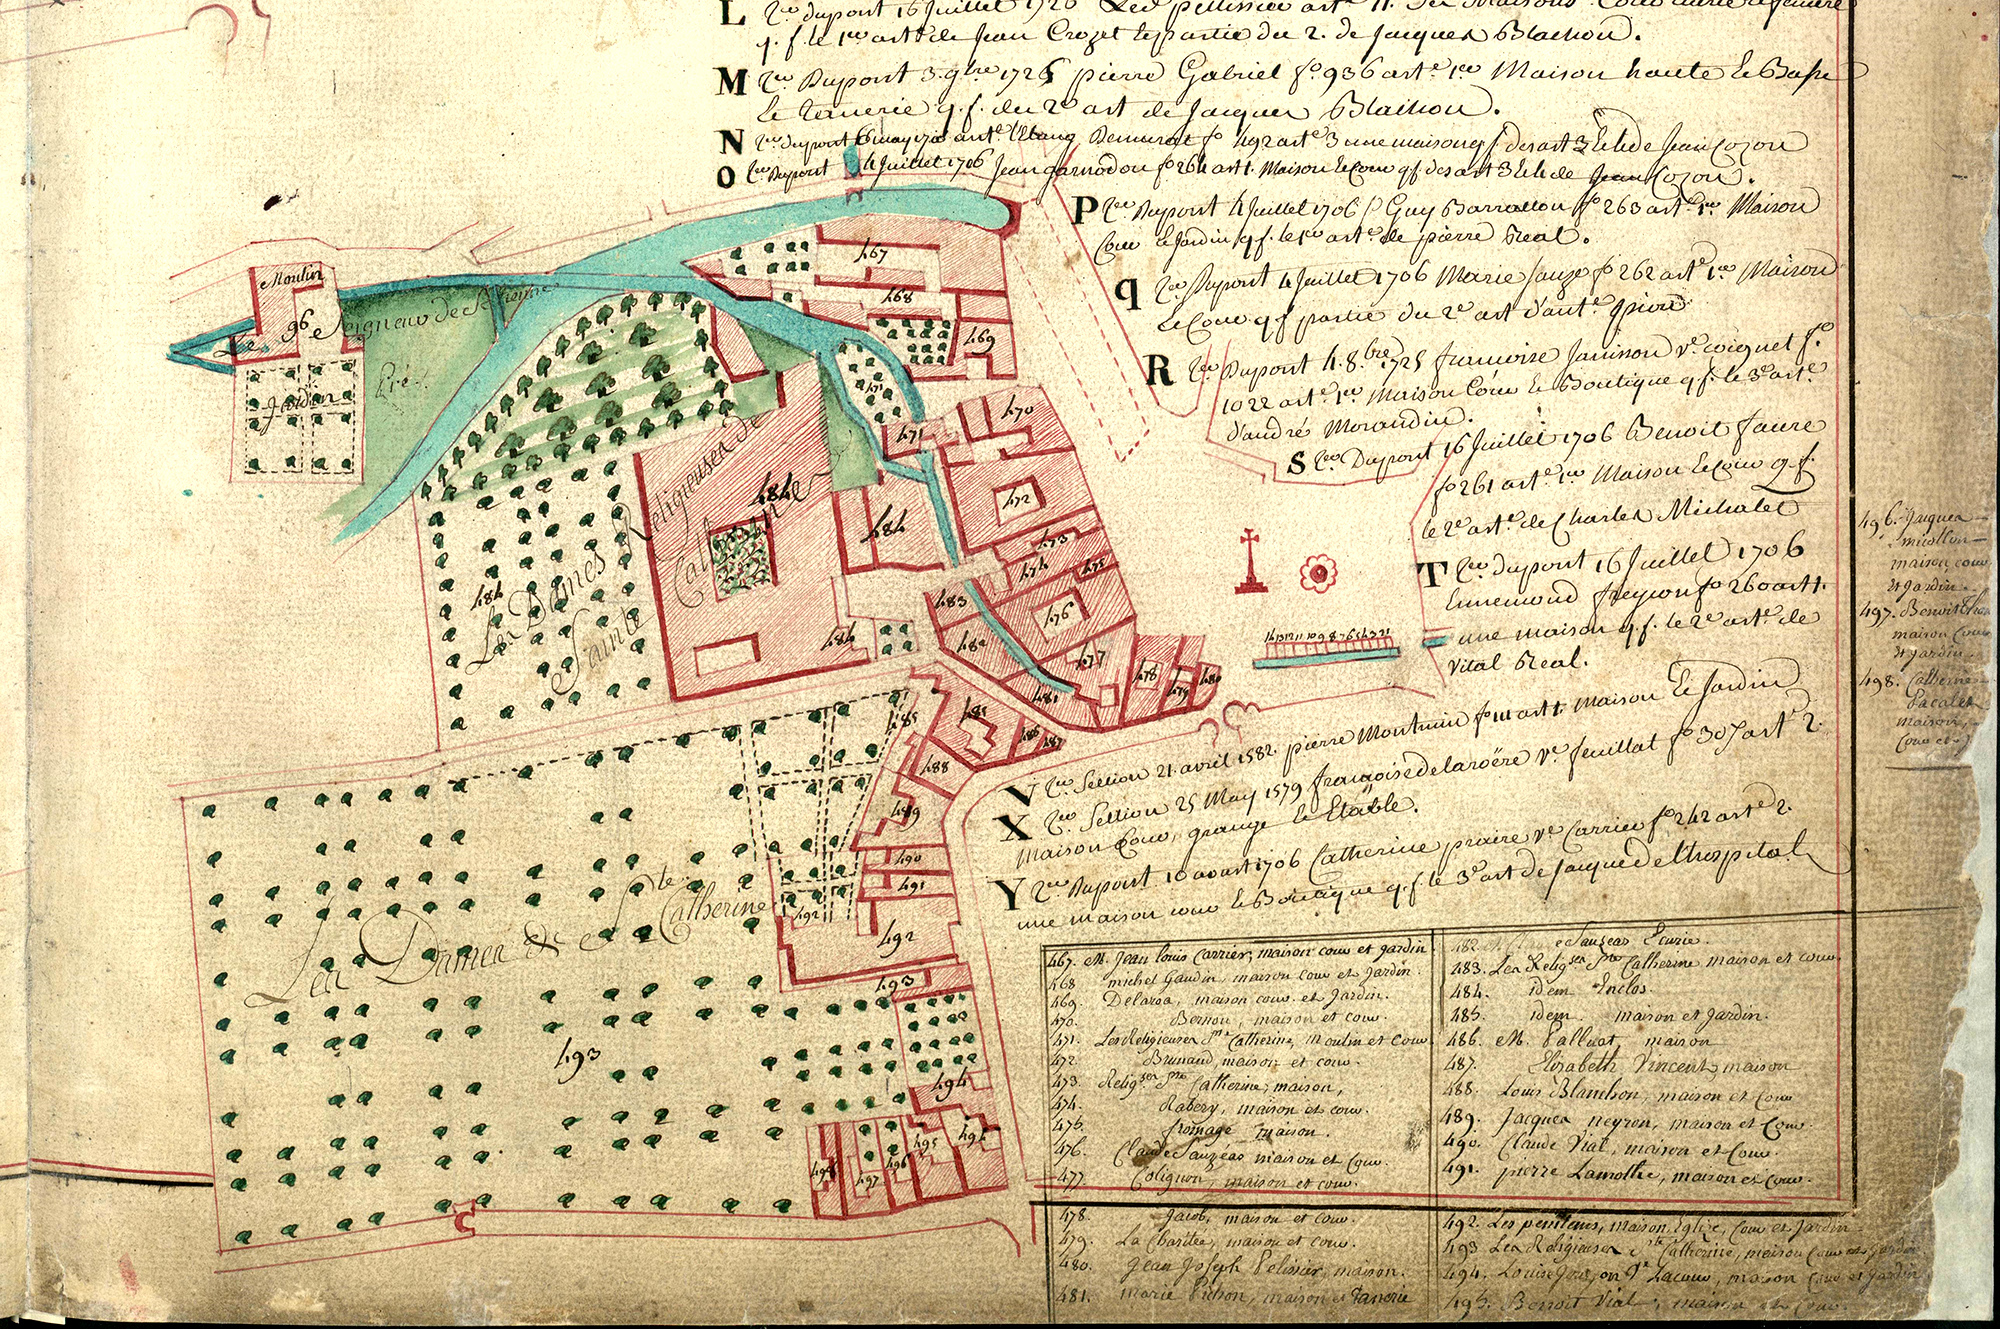 L
q. f. le 1er art. de Jean Crozet le partie du 2. de Jacques Blachon.
M Dupont 3. 9bre 1726 pierre Gabriel fo 936 art. 1er Maison haute le Basse
le Tanerie q. f. du 2e art de Jacques Blachon.
N
O Dupont 4 Juillet 1706 Jean garnodon fo 264 art 1. Maison
P Dupont 4 Juillet 1706 Guy Barrallon fo 263 art. 1er Maison
Cour le Jardin q. f. le 1er art. de pierre Real.
q Dupont 4 Juillet 1706 Marie Jauze fo 262 art. 1er Maison
le Cour q f partie du 2e art d'ant.
R Dupont 4. 8.bre 1725 francoise Janisson ve coignet fo
1022 art. 1er Maison Cour le Boutique q. f. le 3e art.
d'andré Morandin.
S Dupont 16 Juillet 1706 Benoit faure
fo 261 art. 1er Maison le Cour q. f.
le 2e art. de Charles Michalet
T dupont 16 Juillet 1706
Ennemond freycon fo 260 art 1.
une maison q. f. le 2e art. de
Vital Real.
V Section 21 avril 1582. pierre Montmin art 1. Maison le Jardin
X Section 25 May 1579 françoise de laroëre ve feuillat fo 307 art 2.
Maison Cour, grange le Etable.
Y Dupont 10 aoust 1706 Catherine praire ve Carrier fo 242 art 2.
une maison cour le Boutique q. f. le 3e art de Jacque de l'hospital
Moulin
Le 96 Seigneur de St. Etienne
Pré
Jardin
467
468
469
470
471
471
472
473
474
475
476
477
478
479
480
481
482
483
484
484
484
484
Les Dames Religieuses de
Sainte Catherine
14 13 12 11 10 9 8 7 6 5 4 3 2 1
485
485
486
487
488
489
490
491
492
492
493
Les Dames de Ste Catherine
493
494
494
495
496
497
498
467. M. Jean louis Carrier, maison cour et jardin
468 michel Gaudin, maison cour et Jardin.
469. Delaroa, maison cour et Jardin.
470. Bernou, maison et cour.
471. Les Religieuses Ste Catherine, moulin et Cour
472. Brunand, maison et cour.
473. Religses Ste Catherine, maison,
474. Rabery, maison et cour.
475. fromage maison.
476. Claude Sauzéas maison et Cour.
477. Colignon, maison et cour.
478. Jacob, maison et cour.
479. La Charitée, maison et cour.
480. Jean Joseph Pelissier, maison.
481. marie Pichon, maison et Tanerie
482. Sauzeas Ecurie.
483. Les Religses Ste Catherine maison et cour
484. idem Enclos
485. idem. maison et Jardin.
486. M. Palluat, maison
487. Elisabeth Vincent, maison
488. Louis Blambon, maison et Cour
489. Jacques neyron, maison et Cour.
490. Claude Vial, maison et Cour.
491. pierre Lamotte, maison et Cour.
492. Les penitens, maison, Eglise, Cour et Jardin
493 Les Religieuses Ste Catherine, maison Cour et Jardin
494. maison Cour et Jardin
495. Benoit Vial, maison et Cour
496. Jaques
micolon
maison cour
et jardin.
497. Benoit
maison Cour
et jardin.
498. Catherine
Pacalet
maison,
Cour et J